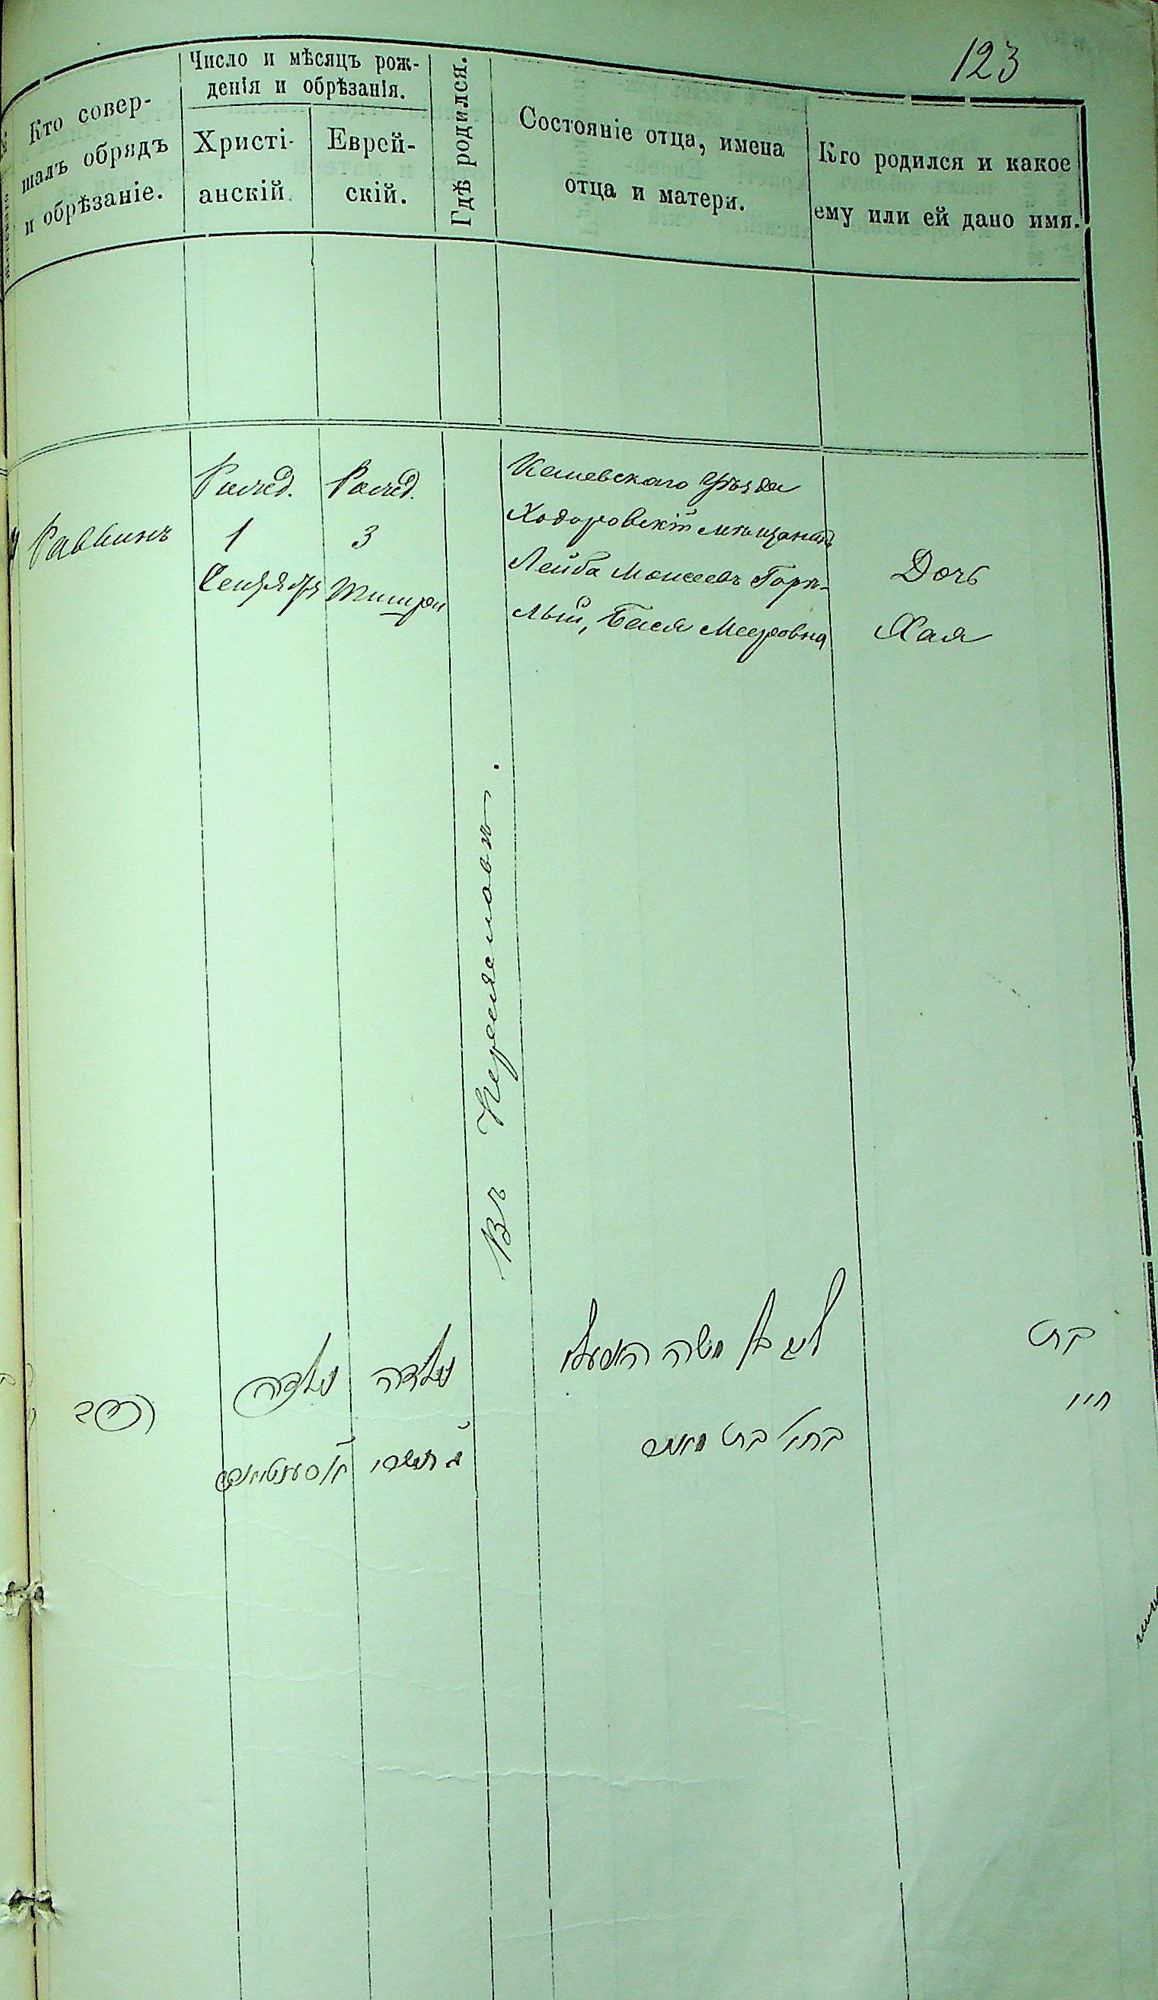 123
Кто совер-
шалъ обрядъ
и обрѣзаніе.
Число и мѣсяцъ рож-
денія и обрѣзанія.
Христі-
анскій.
Еврей-
скій.
Гдѣ родился.
Состояніе отца, имена
отца и матери.
Кто родился и какое
ему или ей дано имя.
Раввинъ
Рожд.
1
Сентября
Рожд.
3
Тишри
Въ Переяславѣ.
Каневскаго Уѣзда
Ходоровскій мѣщанинъ
Лейба Моисеевъ
Бася Мееровна
Дочь
Хая
נולדה
נולדה
ג תשרי
ליב בן משה
בת